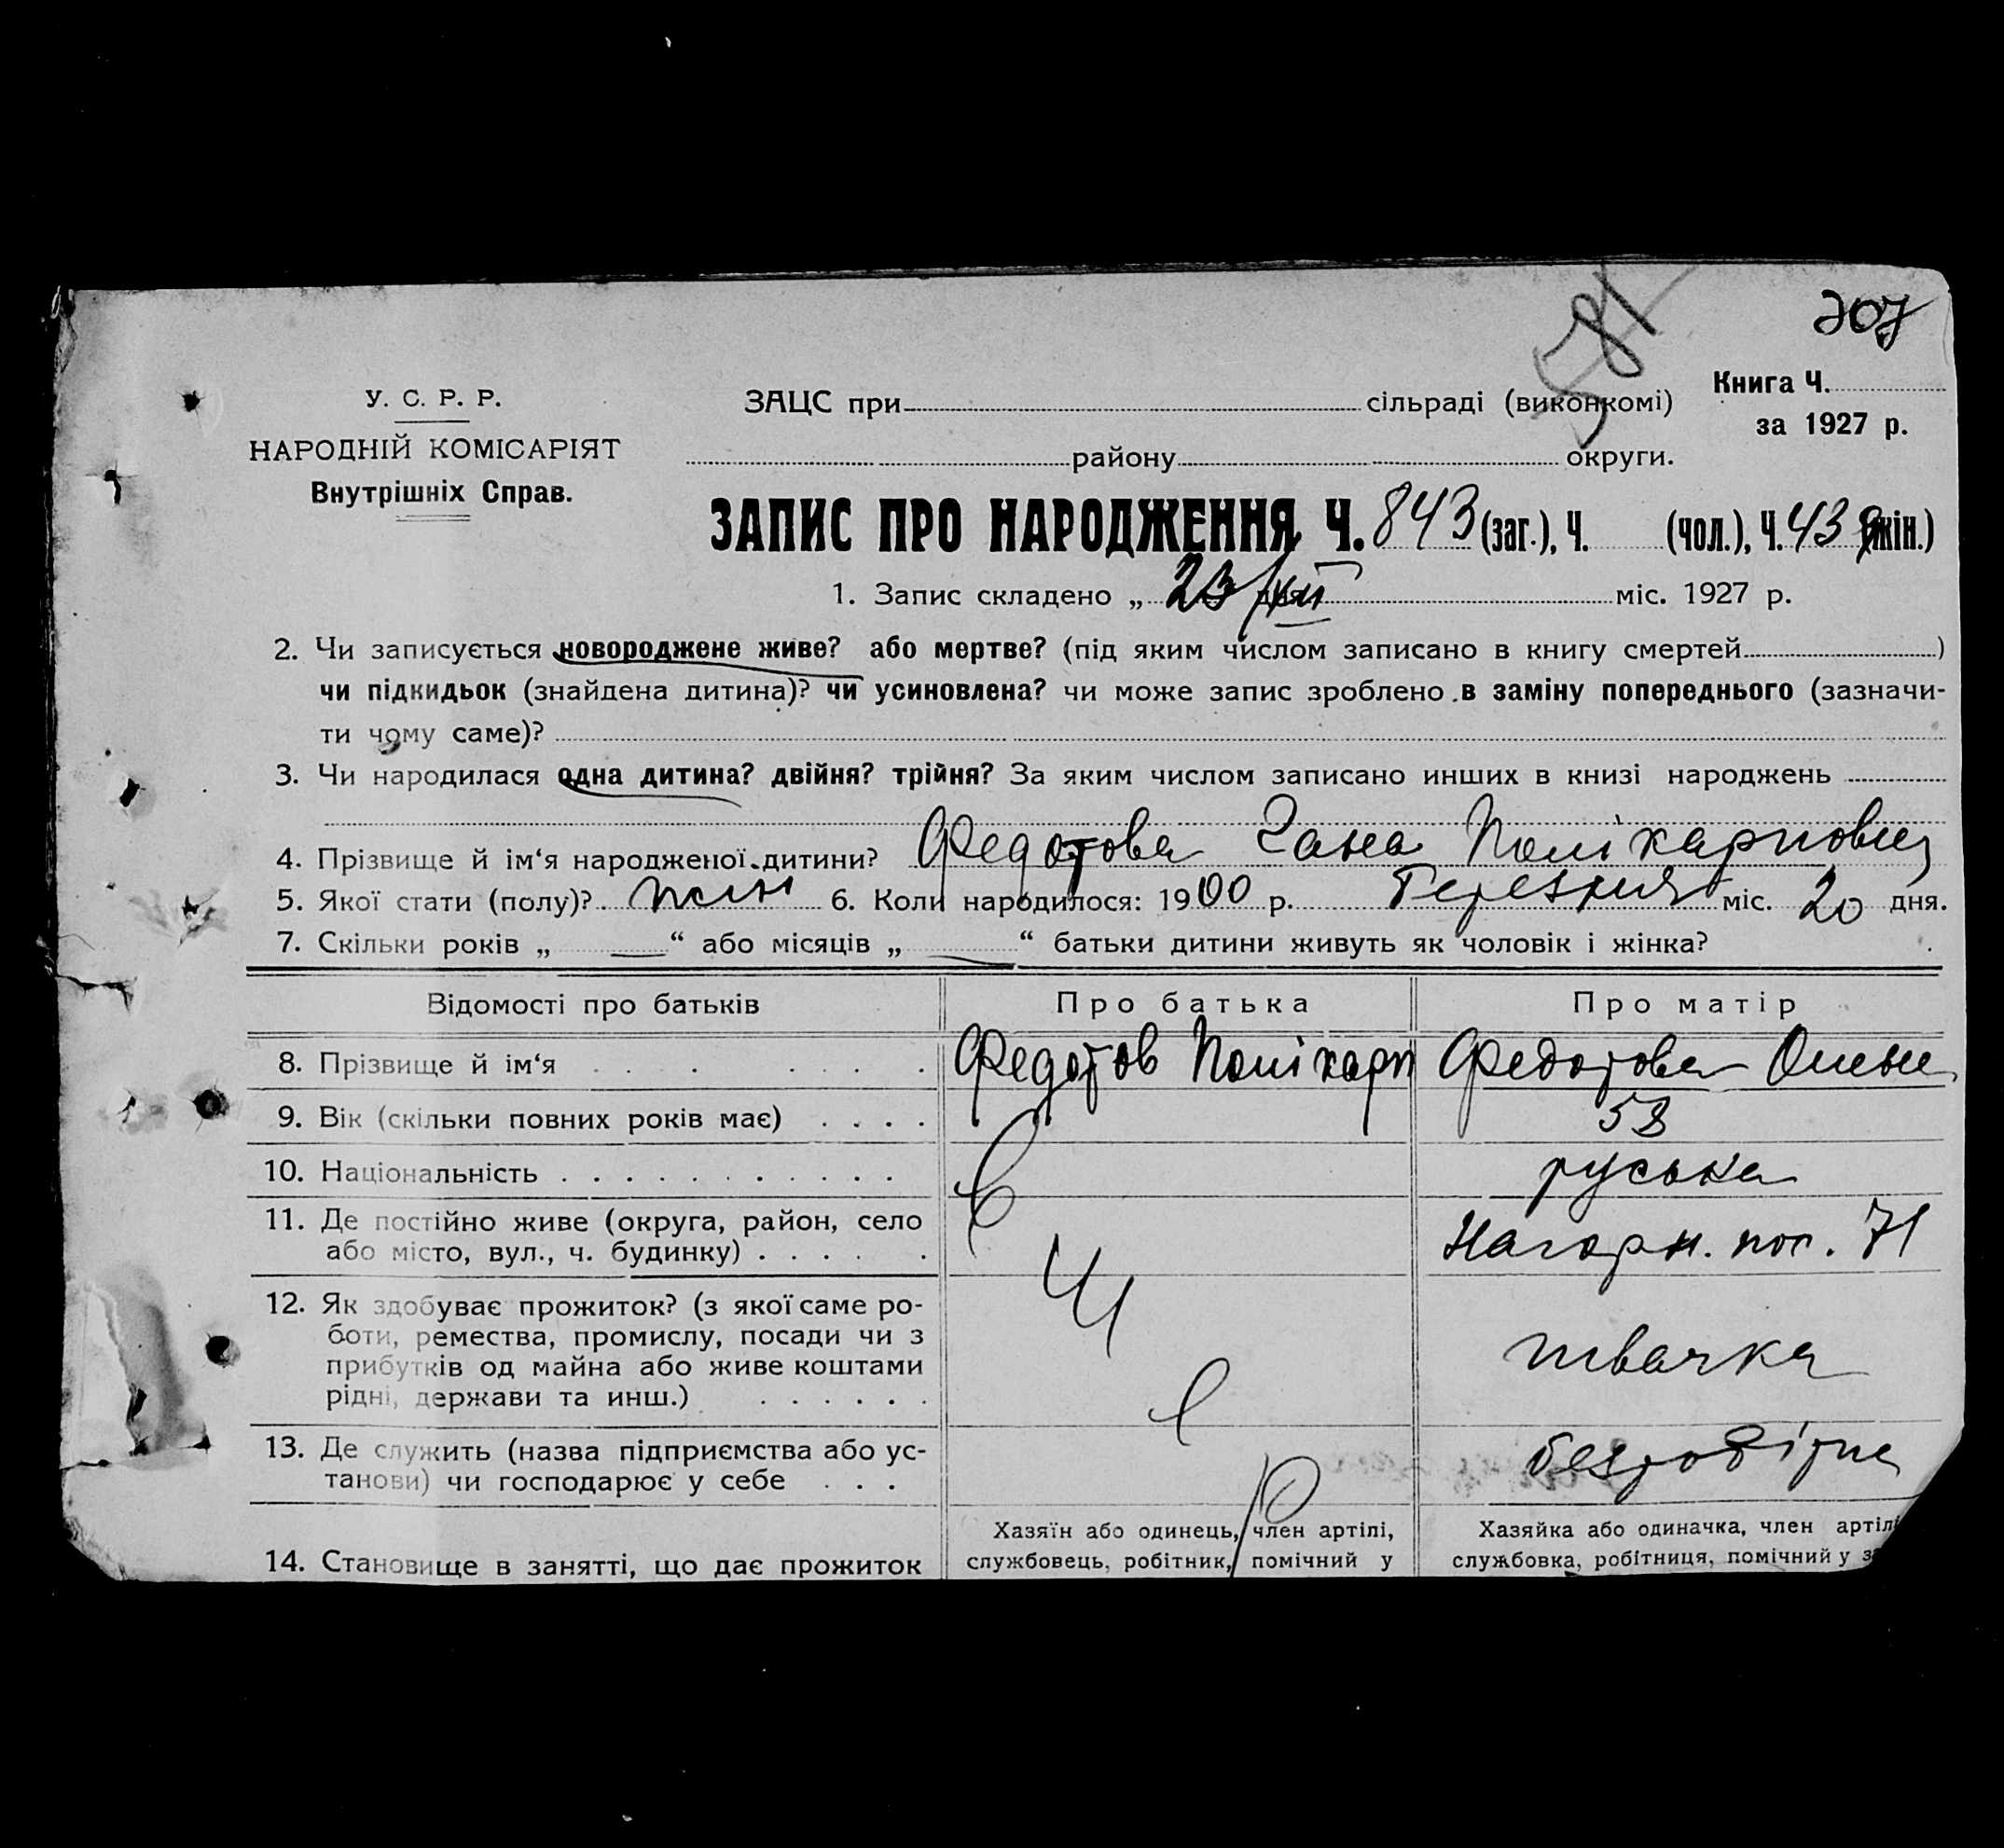 581
207
У. С. Р. Р.
НАРОДНІЙ КОМІСАРІЯТ
Внутрішніх Справ.
ЗАЦС при сільраді (виконкомі)
району округи.
Книга Ч.
за 1927 р.
ЗАПИС ПРО НАРОДЖЕННЯ Ч. 843 (заг.), Ч. (чол.), Ч. 439 (жін.)
1. Запис складено „ 23/XII дня міс. 1927 р.
2. Чи записується новороджене живе? або мертве? (під яким числом записано в книгу смертей )
чи підкидьок (знайдена дитина)? чи усиновлена? чи може запис зроблено в заміну попереднього (зазначи-
ти чому саме)?
3. Чи народилася одна дитина? двійня? трійня? За яким числом записано инших в книзі народжень
4. Прізвище й ім‘я народженої дитини? Федотова Гана Полікарповна
5. Якої стати (полу)? жін 6. Коли народилося: 1900 р. Березня міс. 20 дня.
7. Скільки років „ “ або місяців „ “ батьки дитини живуть як чоловік і жінка?
Відомості про батьків Про батька Про матір
8. Прізвище й ім‘я Федотов Полікарп Федотова Олена
9. Вік (скільки повних років має) 58
10. Національність руська
11. Де постійно живе (округа, район, село
або місто, вул., ч. будинку) Нагорн. пос. 71
12. Як здобуває прожиток? (з якої саме ро-
боти, ремества, промислу, посади чи з
прибутків од майна або живе коштами
рідні, держави та инш.) швачка
13. Де служить (назва підприємства або ус-
танови) чи господарює у себе безробітна
14. Становище в занятті, що дає прожиток
Хазяїн або одинець, член артілі,
службовець, робітник, помічний у
Хазяйка або одиначка, член артілі
службовка, робітниця, помічний у